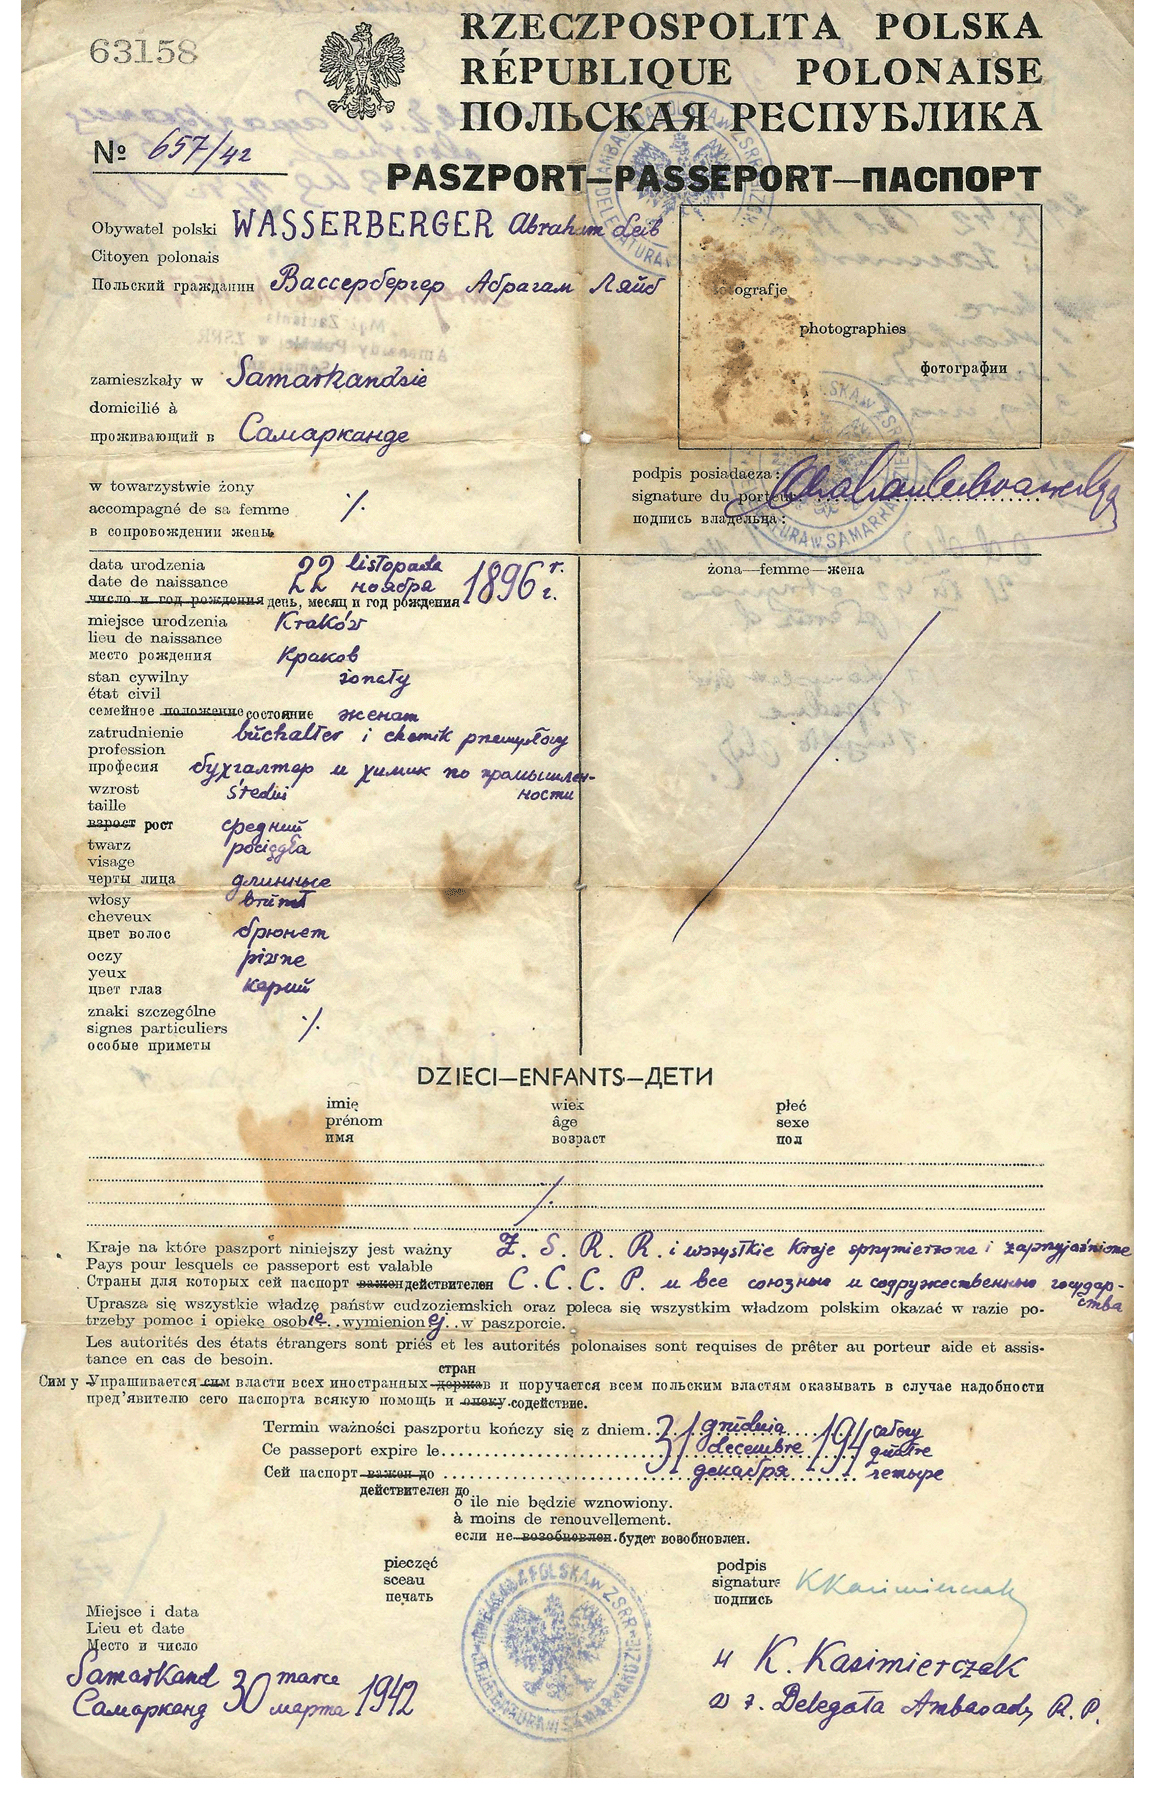 63158
RZECZPOSPOLITA POLSKA
RÉPUBLIQUE POLONAISE
ПОЛЬСКАЯ РЕСПУБЛИКА
№ 657/42
PASZPORT—PASSEPORT—ПАСПОРТ
Obywatel polski WASSERBERGER Abraham Leib
Citoyen polonais
Польский гражданин Вассербергер Абрагам Ляйб
fotografje
photographies
фотографии
zamieszkały w Samarkandzie
domicilié à
проживающий в Самарканде
podpis posiadacza:
signature du porteur:
подпись владельца:
w towarzystwie żony
accompagné de sa femme ./.
в сопровождении жены
data urodzenia 22 listopada 1896 r.
date de naissance 22 ноября г.
число и год рождения день, месяц и год рождения
żona—femme—жена
miejsce urodzenia Kraków
lieu de naissance
место рождения Краков
stan cywilny żonaty
état civil
семейное положение состояние женат
zatrudnienie buchalter i chemik przemysłowy
profession
професия бухгалтер и химик по промышлен-
ности
wzrost średni
taille
взрост рост средний
twarz pociągła
visage
черты лица длинные
włosy brunet
cheveux
цвет волос брюнет
oczy piwne
yeux
цвет глаз карий
znaki szczególne
signes particuliers ./.
особые приметы
DZIECI—ENFANTS—ДЕТИ
imię wiek płeć
prénom âge sexe
имя возраст пол
./.
Kraje na które paszport niniejszy jest ważny Z. S. R. R. i wszystkie Kraje sprzymierzone i zaprzyjaźnione
Pays pour lesquels ce passeport est valable
Страны для которых сей паспорт важен действителен С.С.С.Р. и все союзные и содружественные государ-
ства
Uprasza się wszystkie władzę państw cudzoziemskich oraz poleca się wszystkim władzom polskim okazać w razie po-
trzeby pomoc i opiekę osobie wymienionej w paszporcie.
Les autorités des états étrangers sont priés et les autorités polonaises sont requises de prêter au porteur aide et assis-
tance en cas de besoin.
стран
Сим у Упрашивается сим власти всех иностранных держав и поручается всем польским властям оказывать в случае надобности
пред'явителю сего паспорта всякую помощь и опеку. содействие.
Termin ważności paszportu kończy się z dniem 31 grudnia 194 cztery
Ce passeport expire le 31 decembre 194 quatre
Сей паспорт важен до декабря четыре
действителен до
o ile nie będzie wznowiony.
à moins de renouvellement.
если не возобновлен. будет возобновлен.
pieczęć
sceau
печать
podpis
signature KKazimierczak
подпись
Miejsce i data
Lieu et date
Место и число
Samarkand 30 marca 1942
Самарканд марта
K. Kazimierczak
w z. Delegata Ambasady R. P.